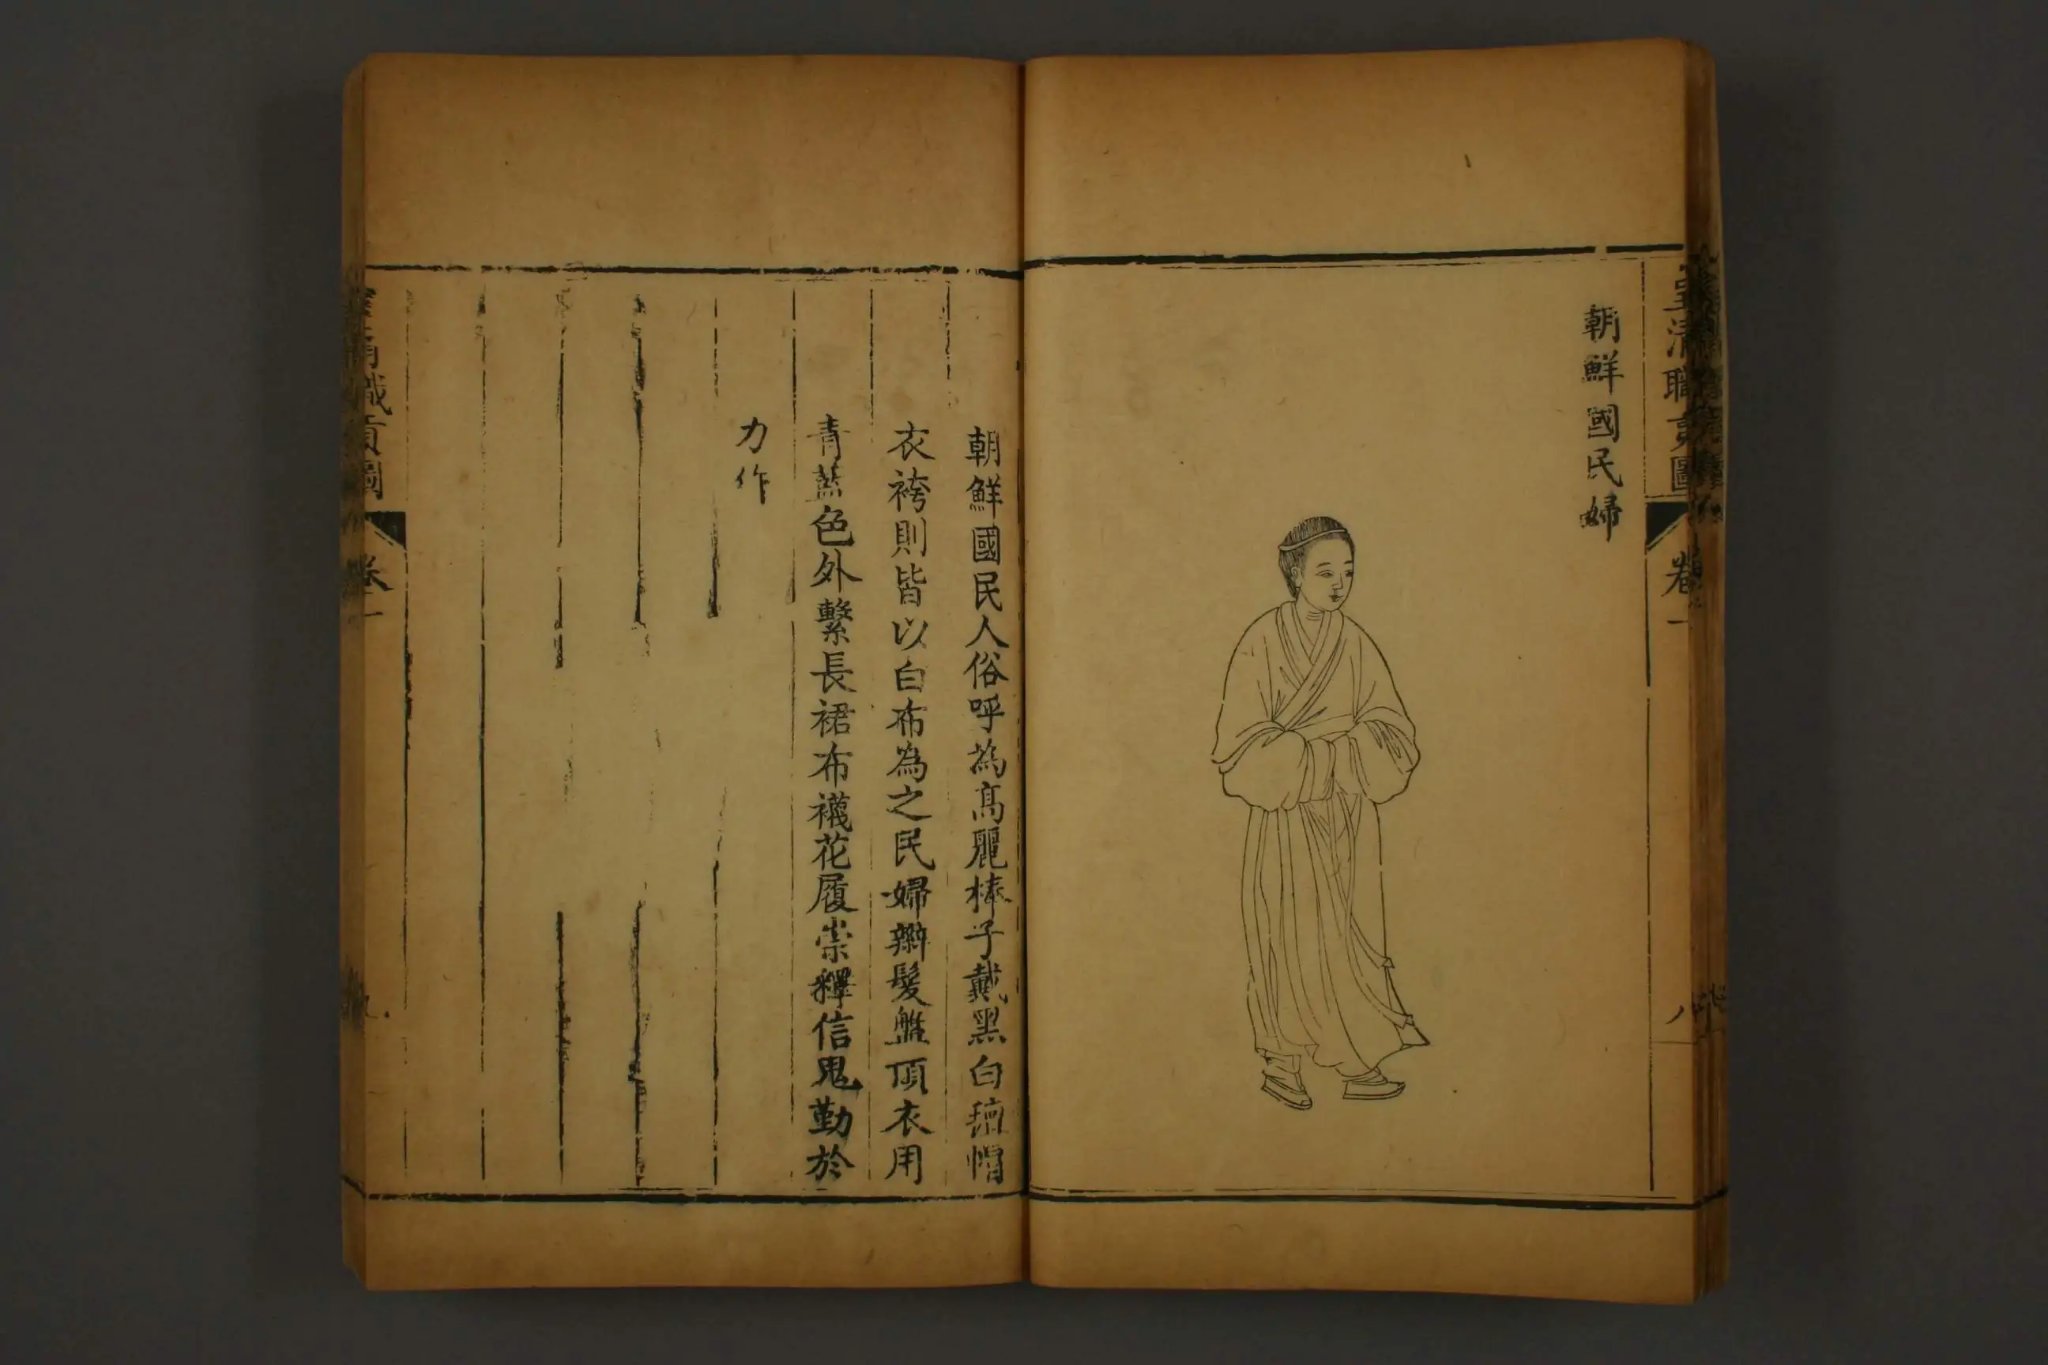 皇清職貢圖
卷一
八
朝鮮國民婦
朝鮮國民人俗呼為髙麗棒子戴黑白氊帽
衣袴則皆以白布為之民婦辮髮盤頂衣用
青藍色外繫長裙布襪花履崇釋信鬼勤於
力作
職貢圖
卷一